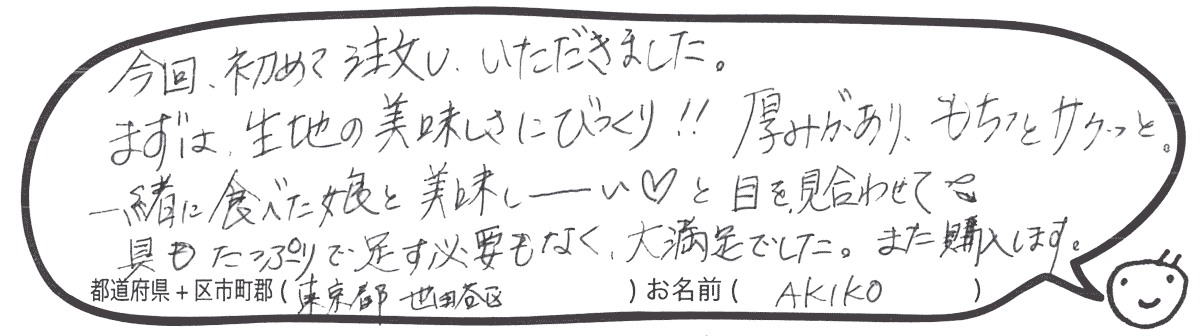 今回、初めて注文し、いただきました。
まずは、生地の美味しさにびっくり!! 厚みがあり、もちっとサクっと。
一緒に食べた娘と美味しーい♡と目を見合わせて
具もたっぷりで足す必要もなく、大満足でした。また購入します。
都道府県+区市町郡(東京都 世田谷区)お名前(AKIKO)